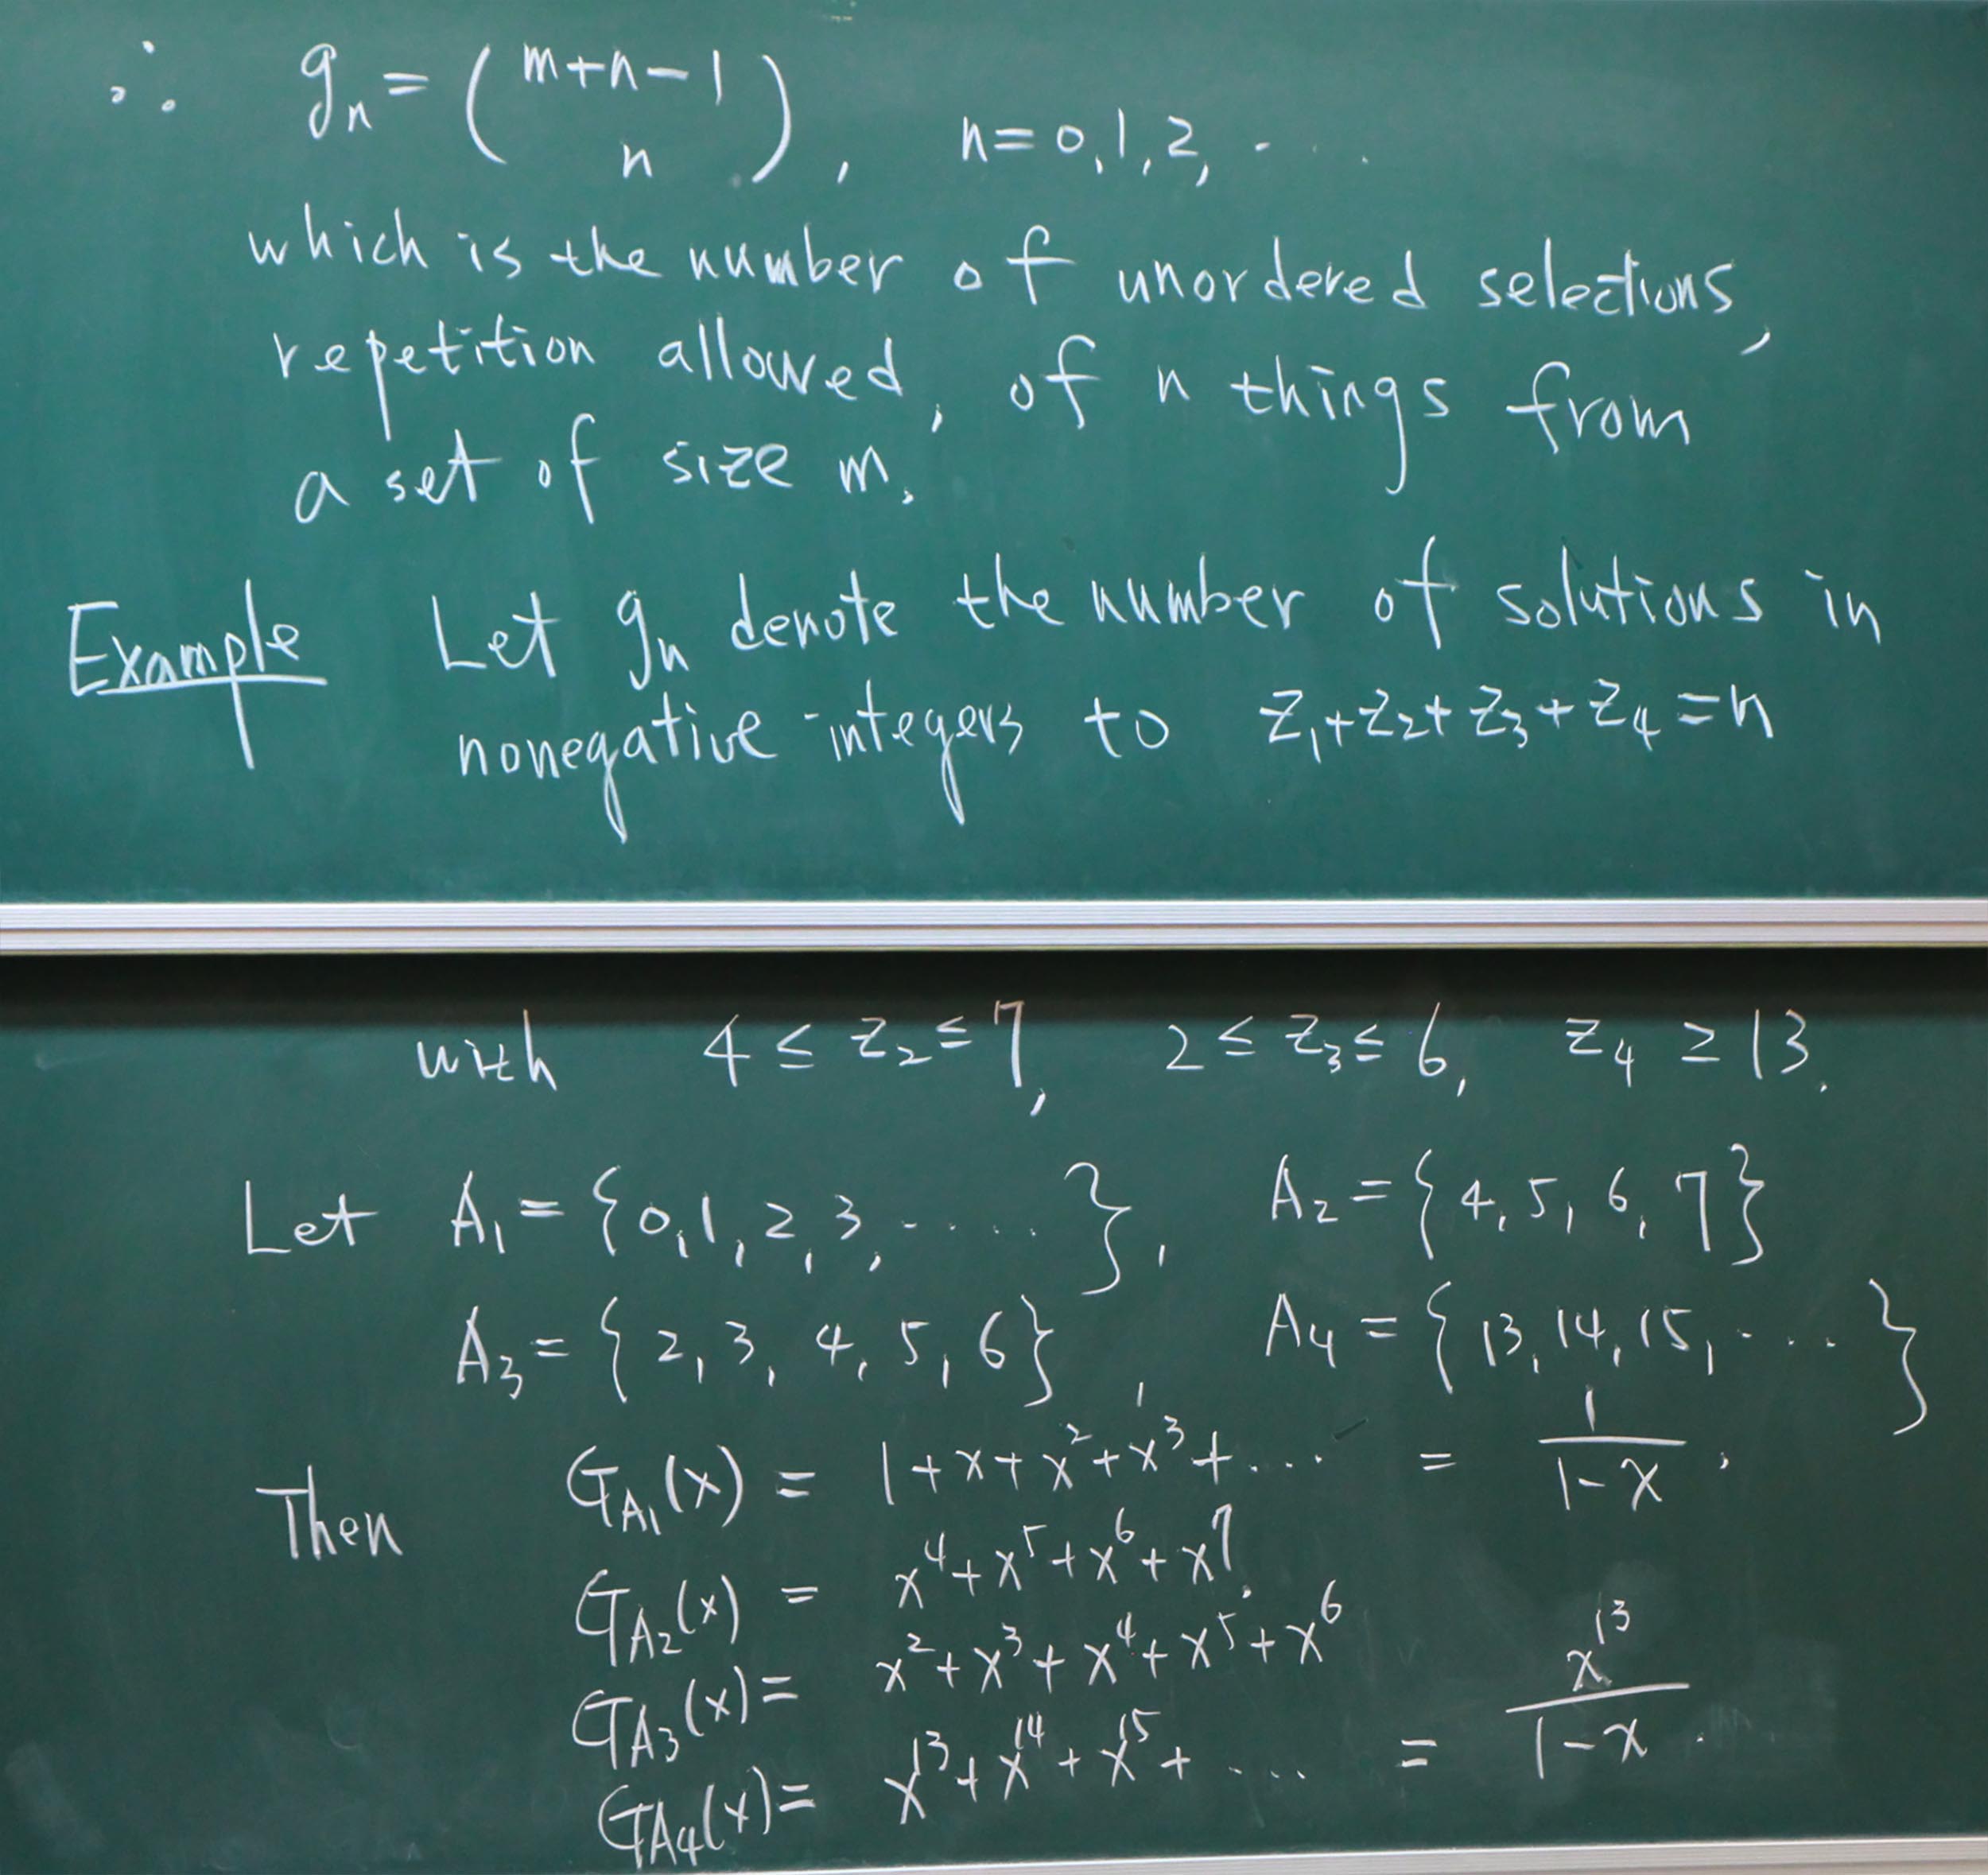 ∴ gₙ = (m+n-1 n), n=0,1,2, ....
which is the number of unordered selections,
repetition allowed, of n things from
a set of size m.
Example Let gₙ denote the number of solutions in
nonegative integers to z₁+z₂+z₃+z₄=n
with 4 ≤ z₂ ≤ 7, 2 ≤ z₃ ≤ 6, z₄ ≥ 13.
Let A₁ = {0,1,2,3,.....}, A₂ = {4,5,6,7}
A₃ = {2,3,4,5,6}, A₄ = {13,14,15,....}
Then G_A₁(x) = 1+x+x²+x³+.... = 1/(1-x),
G_A₂(x) = x⁴+x⁵+x⁶+x⁷,
G_A₃(x) = x²+x³+x⁴+x⁵+x⁶
G_A₄(x) = x¹³+x¹⁴+x¹⁵+.... = x¹³/(1-x).